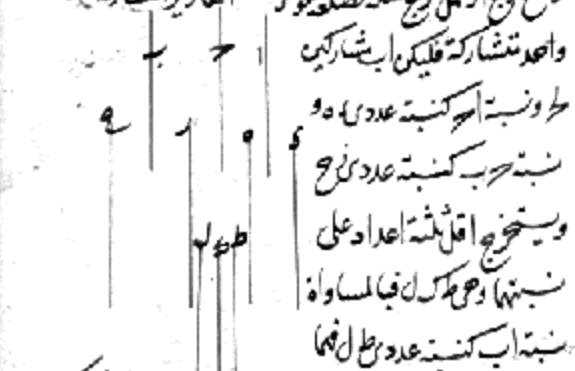 واحد متشاركة فليكن ا ب مشاركين
لـ ح ونسبة ا ح كنسبة عددى ء ه و
نسبة ح ب كنسبة عددى ز ح
ويستخرج اقل ثلثة اعداد على
نسبتهما وهى ط ك ل فبالمساواة
نسبة ا ب كنسبة عددى ط ل فهما
ا ح ب
ء ه ز ح
ط ك ل